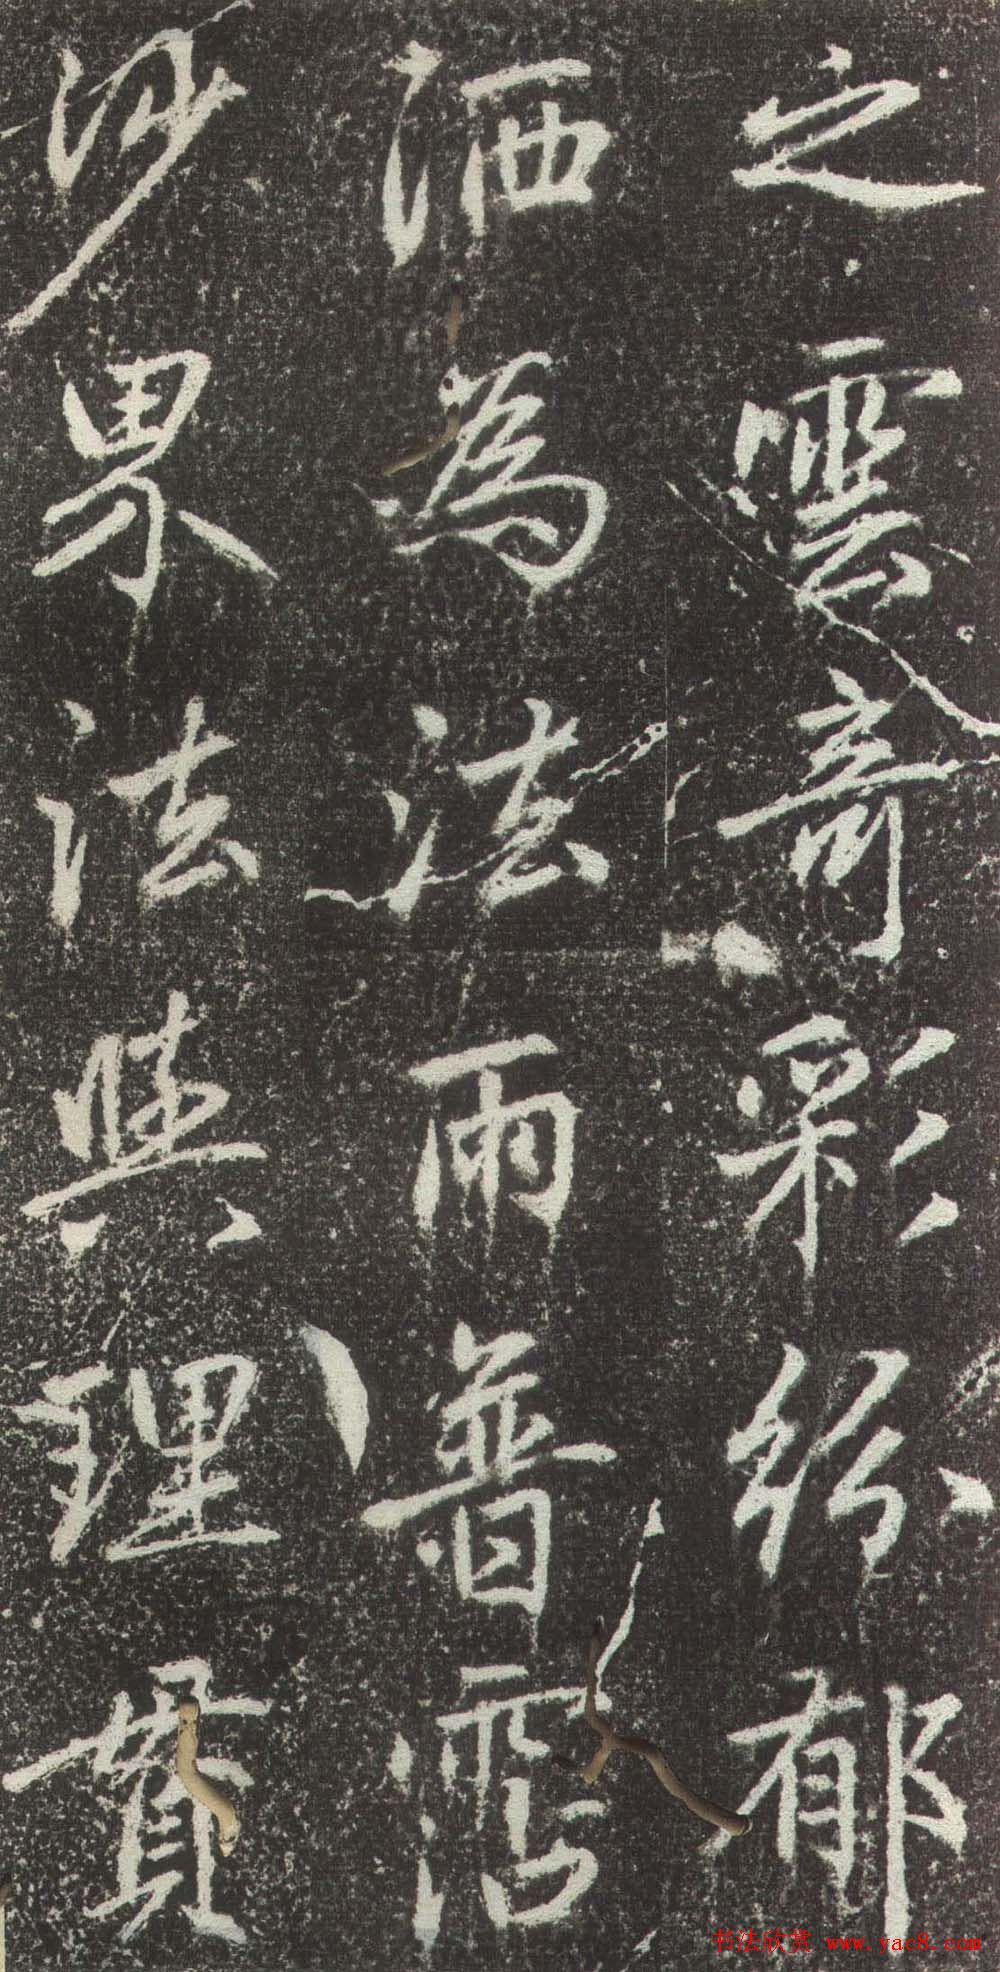 之雲奇彩紛郁
洒為法雨普霑
沙界法與理貫
书法欣赏 www.yac8.com